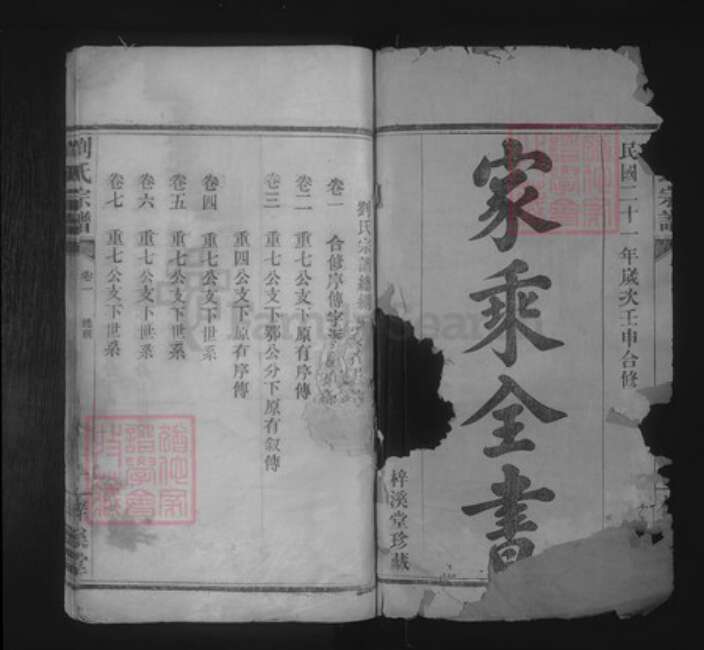 民國二十一年歲次壬申合修
家乘全書
梓溪堂珍藏
劉氏宗譜總
卷一 合修序傳字
卷二 重七公支下原有序傳
卷三 重七公支下鄂公分下原有叙傳
重四公支下原有序傳
卷四 重七公支下世系
卷五 重七公支下世系
卷六 重七公支下世系
卷七 重七公支下世系
劉氏宗譜
卷一
宗譜